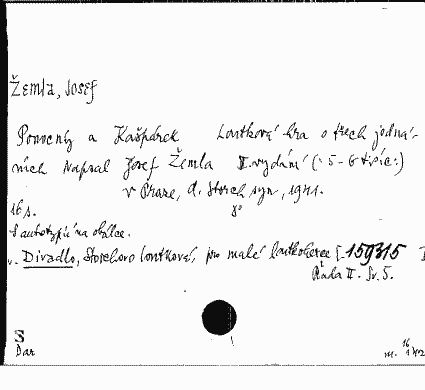 Žemla, Josef
Ponocný a Kašpárek Loutková hra o třech jedná-
ních Napsal Josef Žemla II. vydání (: 5-6 tisíc :)
v Praze, A. Storch syn, 1941.
16 s. 8°
S autotypií na obálce.
v. Divadlo, Storchovo loutkové, pro malé loutkoherce [159315
Řada II. Sv. 5.
S
Dar
m.